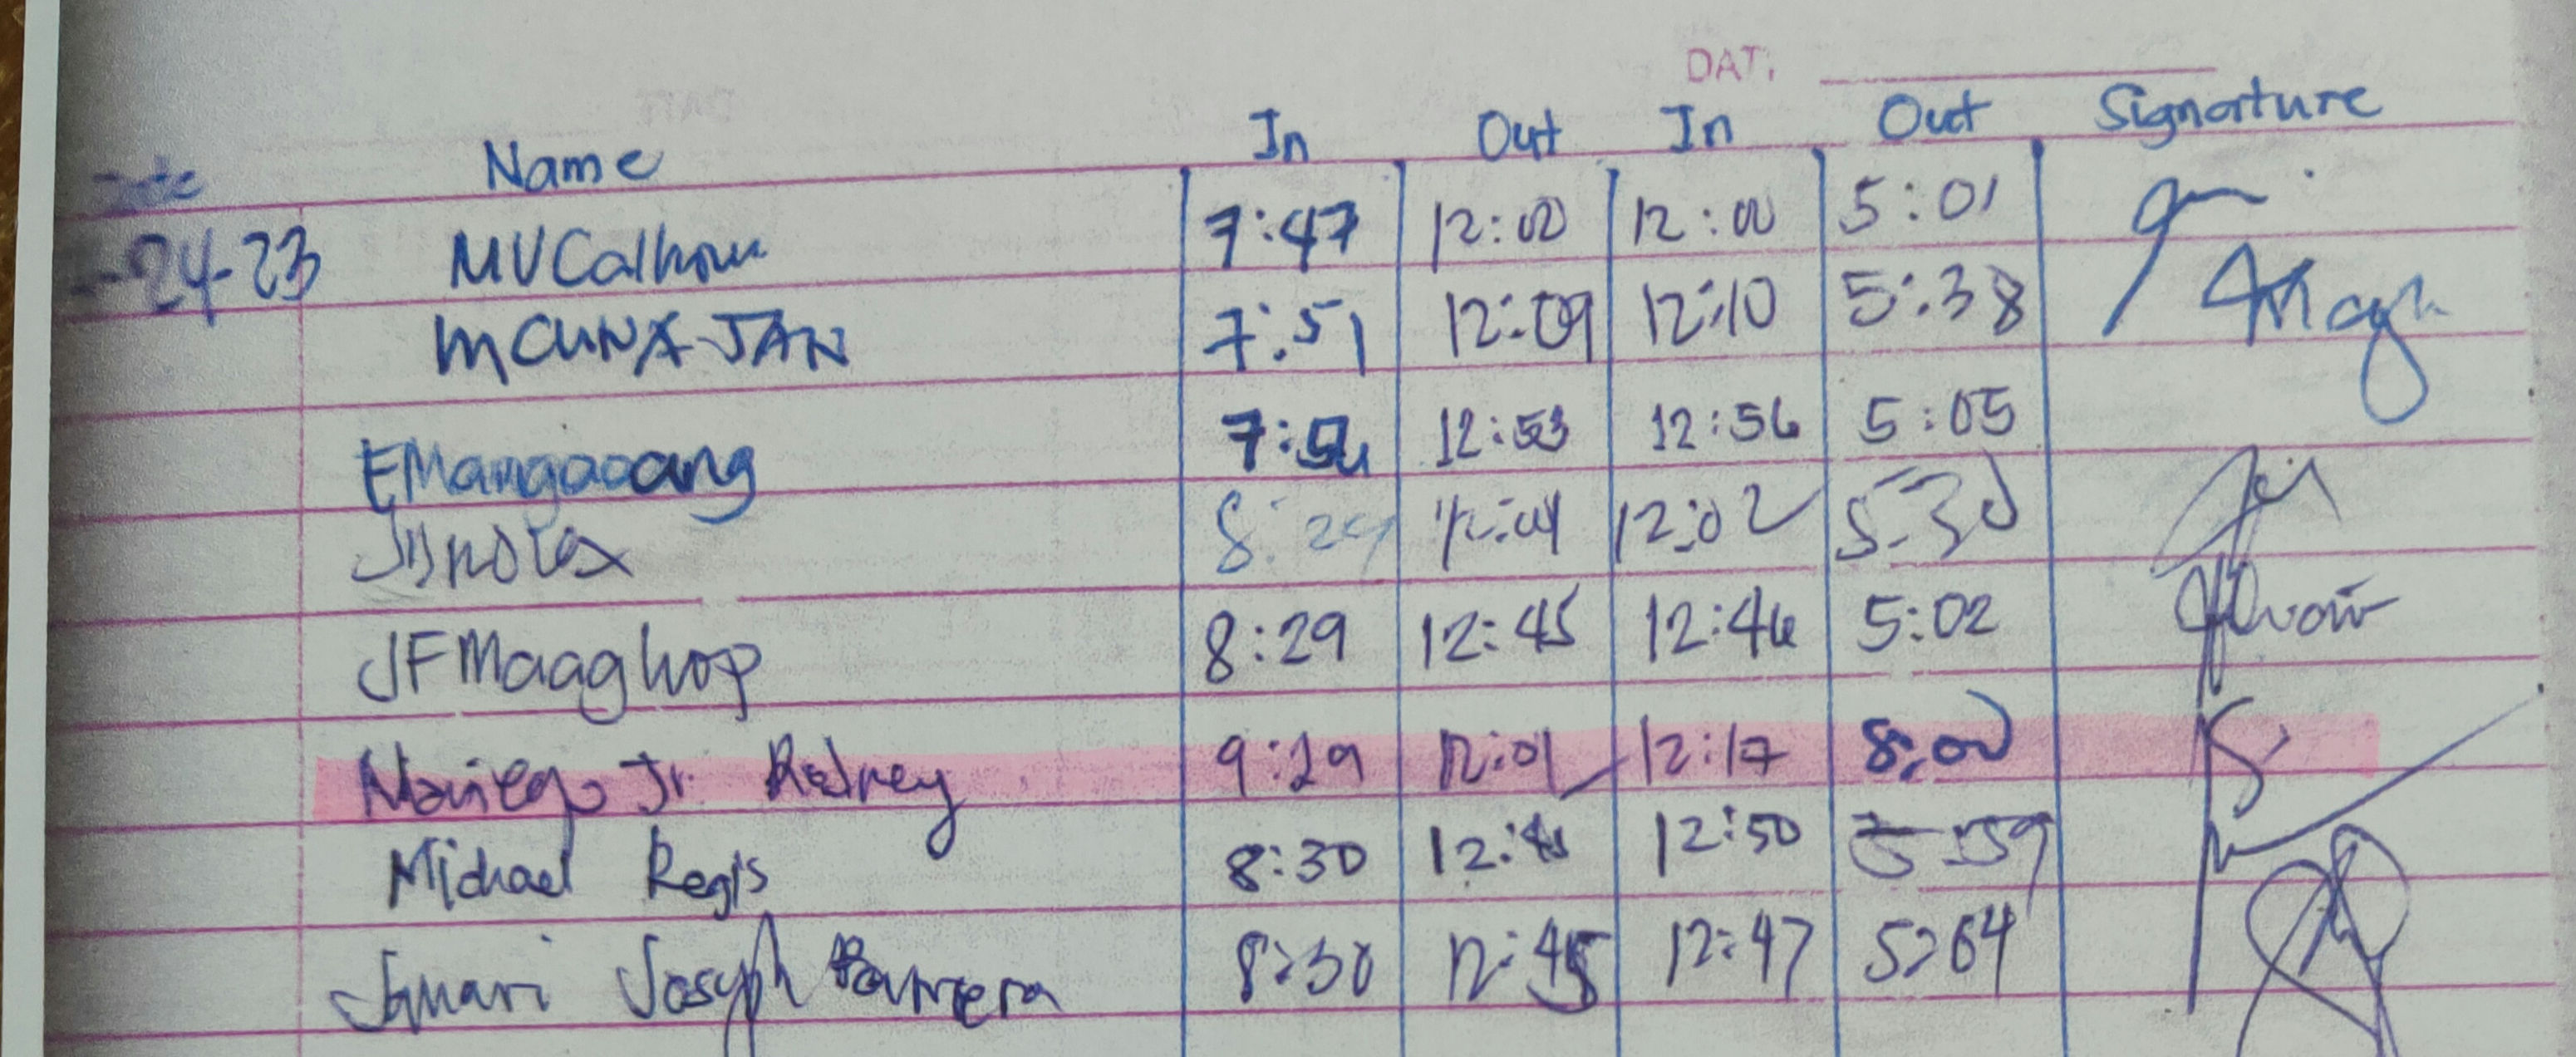 DAT
Date Name In Out In Out Signature
-24-23 MVCalhoun 7:47 12:00 12:00 5:01
MCUNAJAN 7:51 12:09 12:10 5:38
EMangaoang 7:54 12:53 12:56 5:05
8:29 12:04 12:02 5:30
JFMaaghop 8:29 12:45 12:46 5:02
Jr. Rodney 9:29 12:01 12:17 8:00
Michael Regis 8:30 12:50
Joseph Barrera 8:30 12:45 12:47 5:04